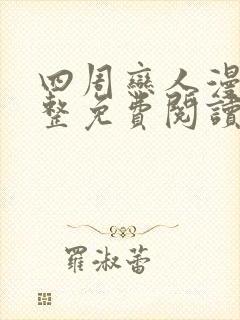 四周恋人漫
整免費閱讀
羅淑蕾